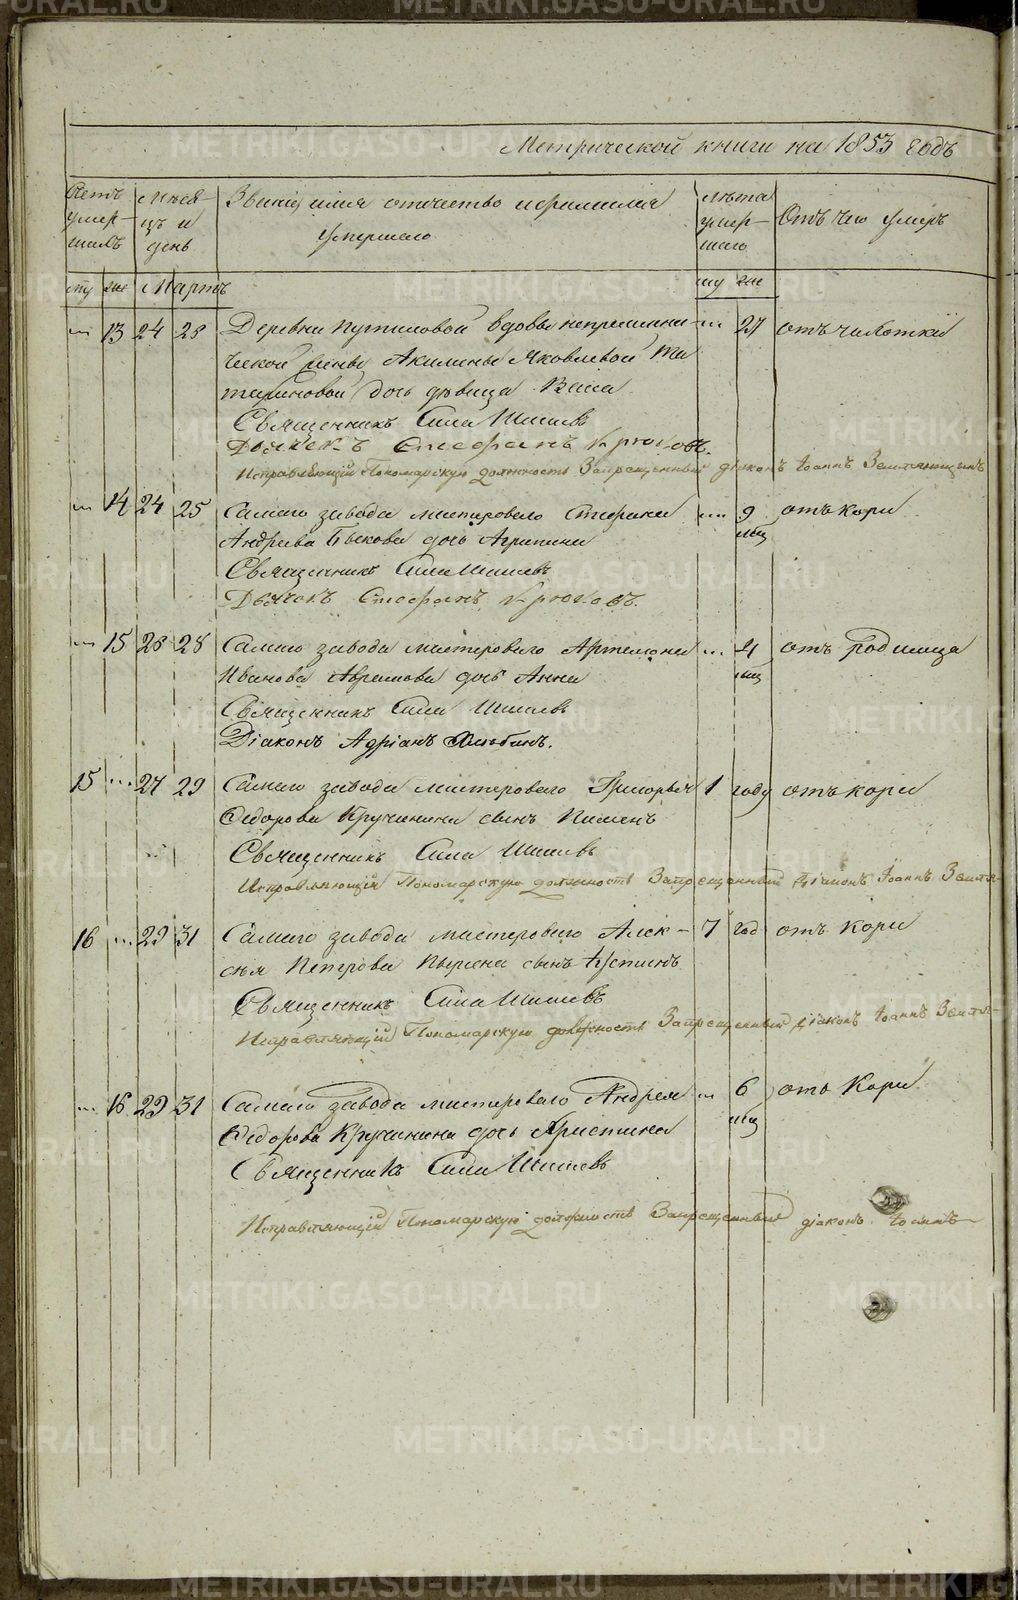 Метрической книги на 1853 годъ
Счетъ умер-шихъ
Мѣся-цъ и день
Званіе, имя отечество и фамилія умершаго
лѣта умер-шаго
Отъ чего умеръ
му же Мартъ му же
13 24 28 Деревни Путиловой вдовы непремѣнни- 27 отъ чахотки
ческой жены Акилины Яковлевой
дочь дѣвица Васса
Священникъ Сила Шишевъ
Дьячекъ Стефанъ Крюковъ.
Исправляющій Пономарскую должность Запрещенный діаконъ Іоаннъ Земляницынъ
14 24 25 Самаго завода мастероваго Стефана 9 мѣц отъ кори
Андреева Быкова дочь Агрипина
Священникъ Сила Шишевъ
Дьячекъ Стефанъ Крюковъ.
15 26 28 Самаго завода мастероваго Артемона 4 мѣц отъ родимца
Иванова Абрамова дочь Анна
Священникъ Сила Шишевъ
Діаконъ Адріанъ Хлыбинъ.
15 27 29 Самаго завода мастероваго Григорья 1 году отъ кори
Федорова Кручинина сынъ Пименъ
Священникъ Сила Шишевъ
Исправляющій Пономарскую должность Запрещенный Діаконъ Іоаннъ Земля-
16 29 31 Самаго завода мастероваго Алек- 7 год отъ кори
сѣя Петрова сынъ Устинъ
Священникъ Сила Шишевъ
Исправляющій Пономарскую должность Запрещенный діаконъ Іоаннъ Земля-
16 29 31 Самаго завода мастероваго Андрея 6 мѣц отъ Кори
Федорова Кручинина дочь Христина
Священникъ Сила Шишевъ
Исправляющій Пономарскую должность Запрещенный діаконъ Іоаннъ
METRIKI.GASO-URAL.RU